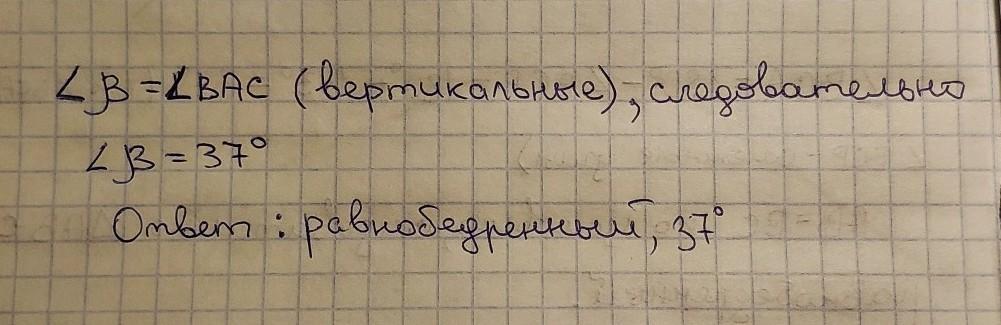 ∠β = ∠BAC (вертикальные), следовательно
∠β = 37°
Ответ: равнобедренный, 37°